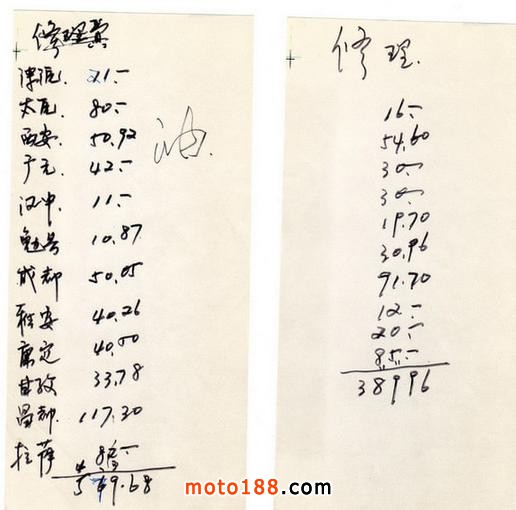 修理费
保定. 21.—
太原. 80.—
西安. 50.92
油.
广元. 42.—
汉中. 11.—
勉县 10.87
成都 50.05
雅安 40.26
康定 40.00
甘孜 33.78
昌都. 117.30
拉萨
9.68
修理.
16.—
54.60
30.—
30.—
19.70
30.96
91.70
12.—
20.—
85.—
389.96
moto188.com